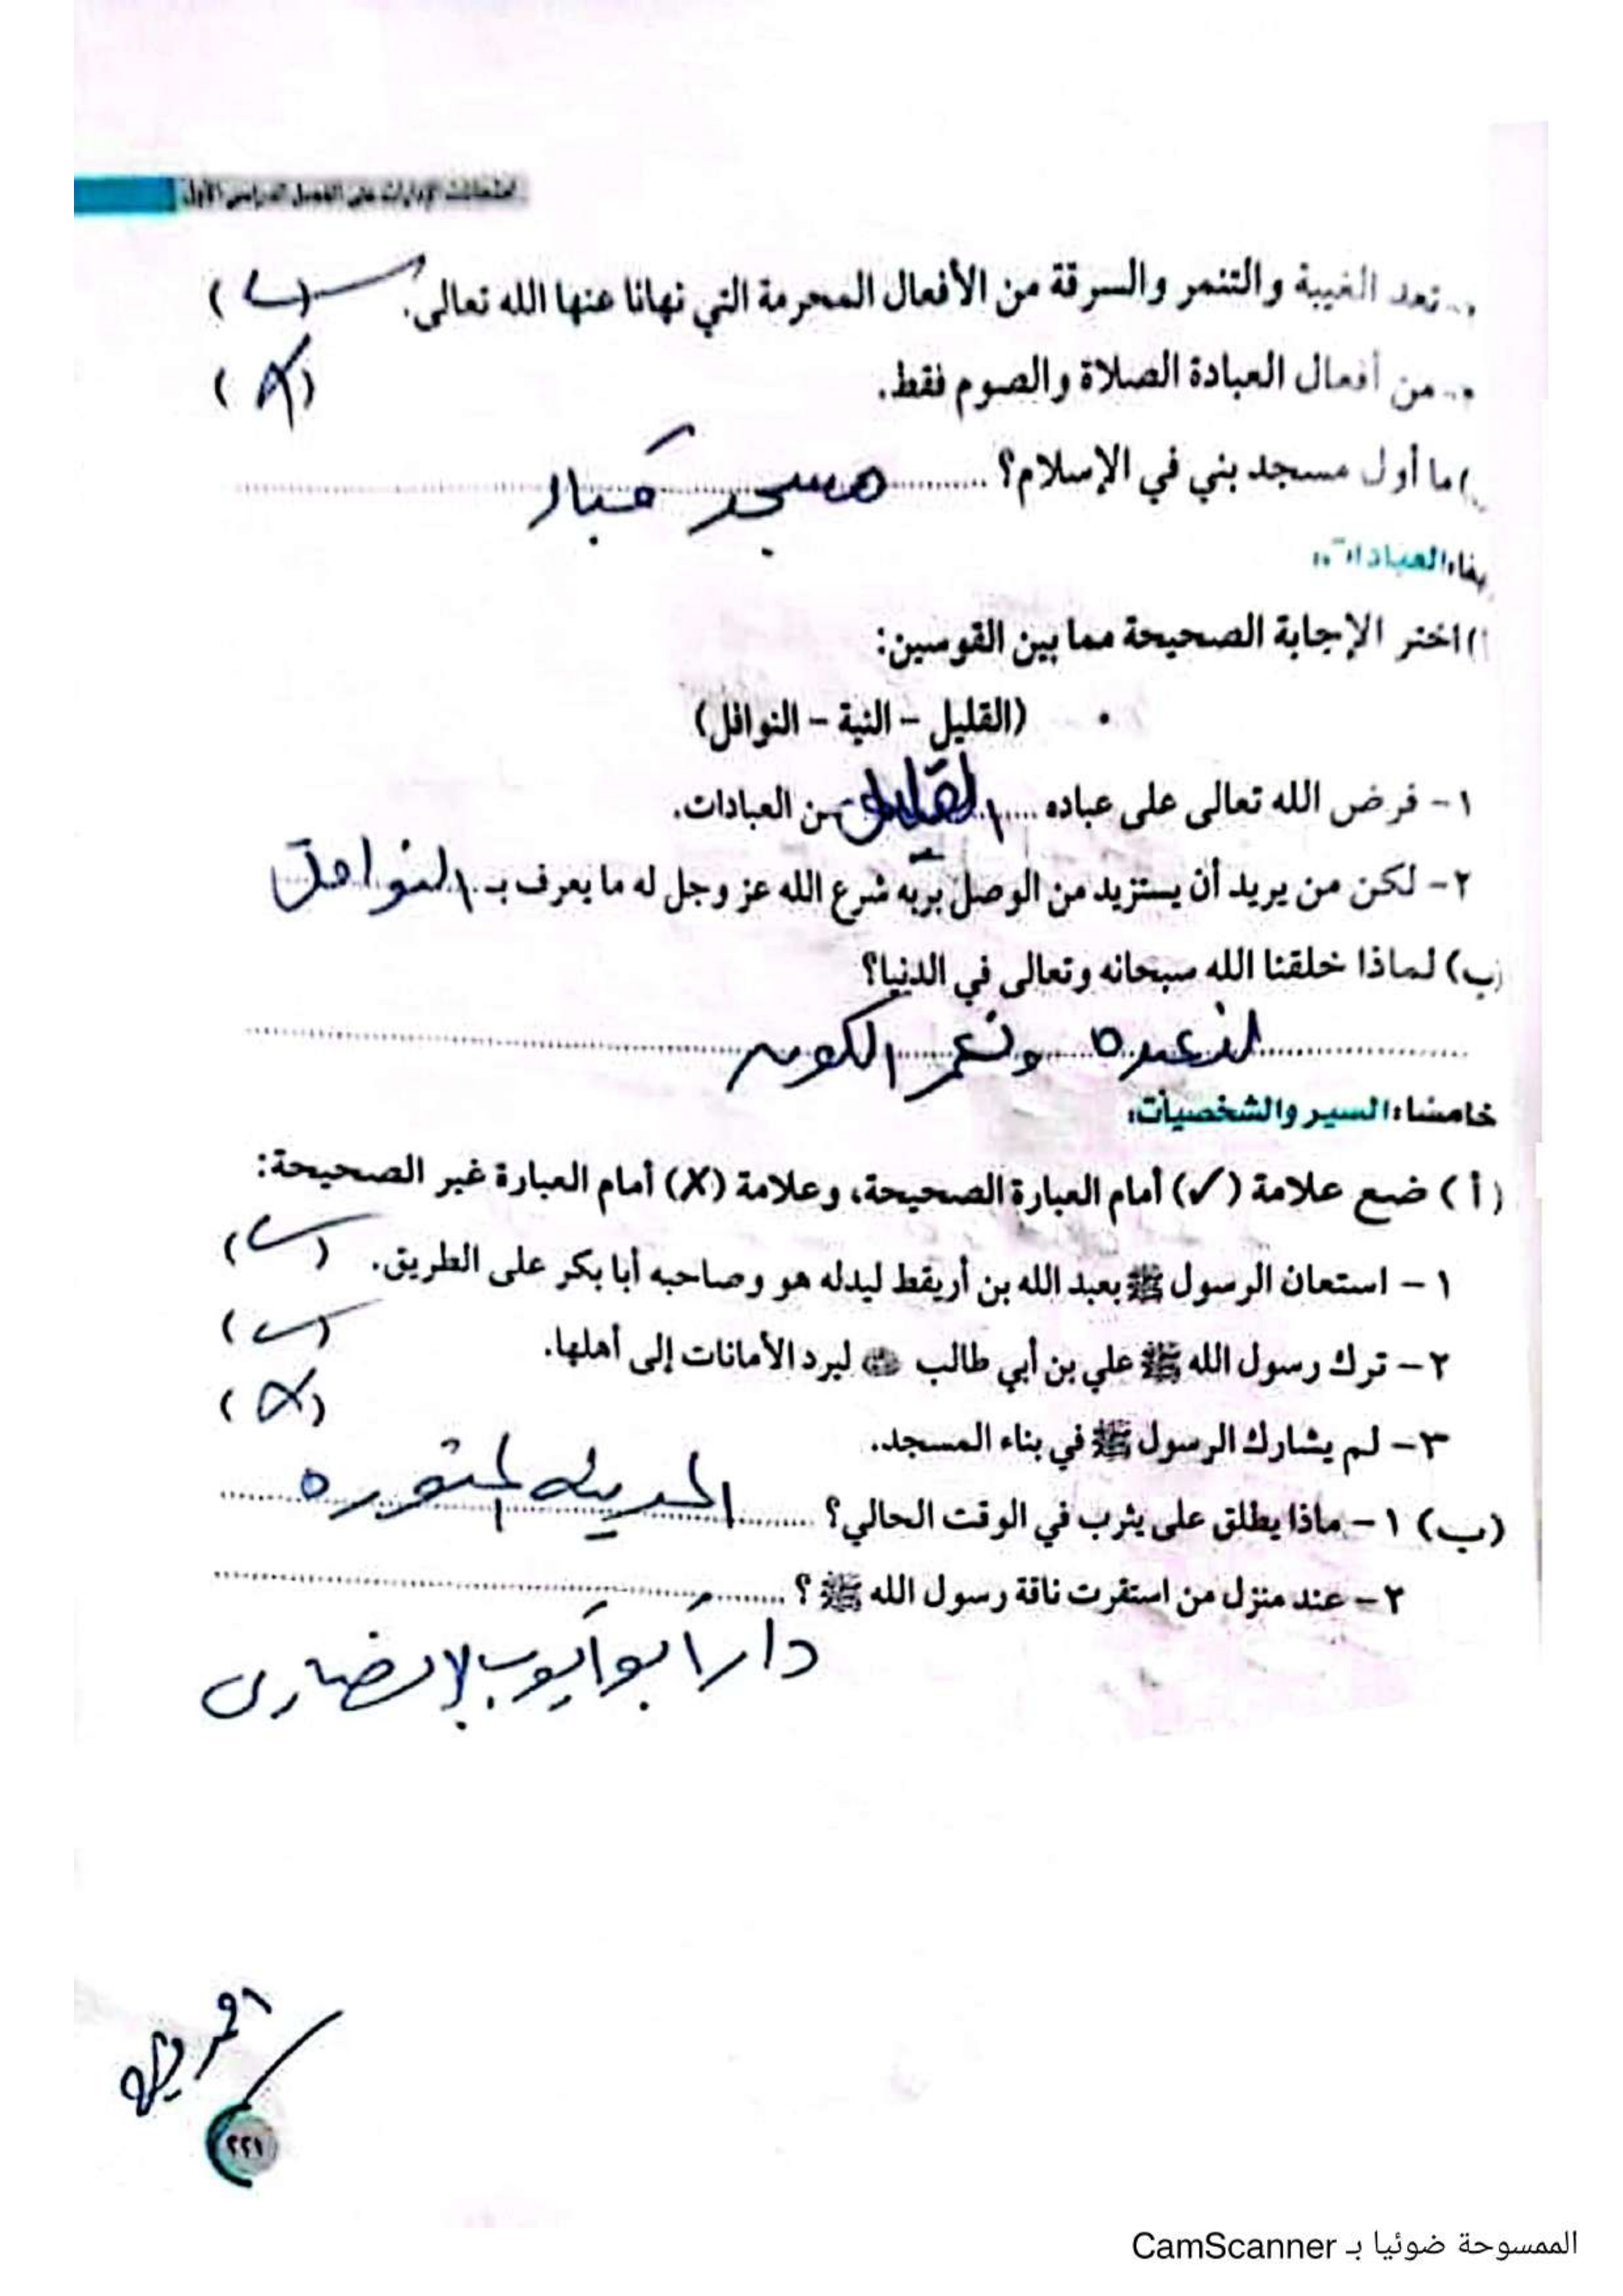 امتحانات الإدارات على الفصل الدراسي الأول
تعد الغيبة والتنمر والسرقة من الأفعال المحرمة التي نهانا عنها الله تعالى. (✓)
من أفعال العبادة الصلاة والصوم فقط. (X)
) ما أول مسجد بني في الإسلام؟ مسجد قباء
العبادات:
) اختر الإجابة الصحيحة مما بين القوسين:
(القليل – النية – النوافل)
١ – فرض الله تعالى على عباده ..... القليل من العبادات.
٢ – لكن من يريد أن يستزيد من الوصل بربه شرع الله عز وجل له ما يعرف بـ النوافل
(ب) لماذا خلقنا الله سبحانه وتعالى في الدنيا؟
لنعبده ونعمر الكون
خامسًا: السير والشخصيات:
(أ) ضع علامة (✓) أمام العبارة الصحيحة، وعلامة (X) أمام العبارة غير الصحيحة:
١ – استعان الرسول ﷺ بعبد الله بن أريقط ليدله هو وصاحبه أبا بكر على الطريق. (✓)
٢ – ترك رسول الله ﷺ علي بن أبي طالب ليرد الأمانات إلى أهلها. (✓)
٣ – لم يشارك الرسول ﷺ في بناء المسجد. (X)
(ب) ١ – ماذا يطلق على يثرب في الوقت الحالي؟ ..... المدينه المنوره
٢ – عند منزل من استقرت ناقة رسول الله ﷺ ؟ .....
دار أبو أيوب الانصارى
٢٢١
الممسوحة ضوئيا بـ CamScanner